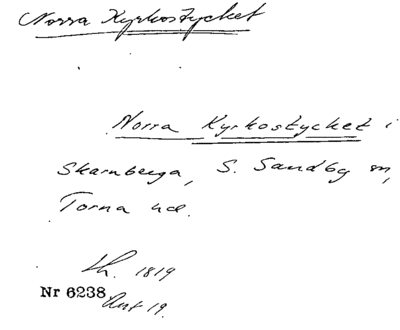 Norra Kyrkostycket
Norra Kyrkostycket i
Skarnberga, S. Sandby sn,
Torna hd.
1819
Nr 6238
Akt 19.